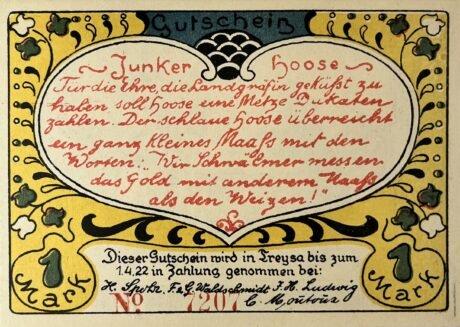 Gutschein
Junker Hoose
Für die Ehre, die Landgräfin geküßt zu
haben soll Hoose eine Metze Dukaten
zahlen. Der schlaue Hoose überreicht
ein ganz kleines Maaß mit den
Worten: "Wir Schwälmer messen
das Gold mit anderem Maaß
als den Weizen!"
Dieser Gutschein wird in Treysa bis zum
1.4.22 in Zahlung genommen bei:
H. Spohr. F. & G. Waldschmidt F. H. Ludwig
No 7207 C. Moutoux
1 Mark
1 Mark